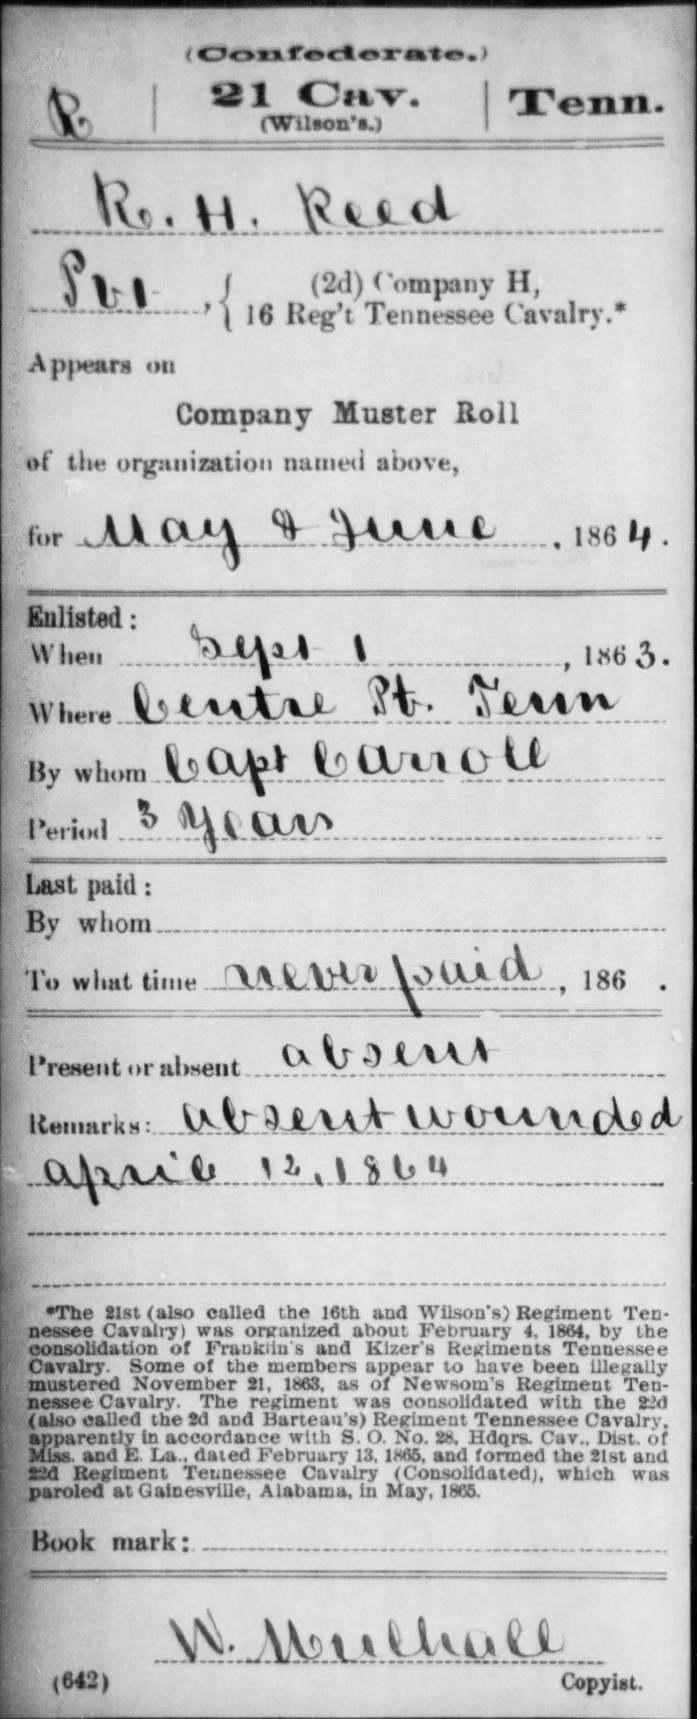 (Confederate.)
R | 21 Cav. | Tenn.
(Wilson's.)
R. H. Reed
Pvt, { (2d) Company H,
16 Reg't Tennessee Cavalry.*
Appears on
Company Muster Roll
of the organization named above,
for May & June, 1864.
Enlisted:
When Sept 1, 1863.
Where Centre Pt. Tenn
By whom Capt Carroll
Period 3 years
Last paid:
By whom
To what time never paid, 186 .
Present or absent absent
Remarks: absent wounded
April 12, 1864
*The 21st (also called the 16th and Wilson's) Regiment Ten-
nessee Cavalry) was organized about February 4, 1864, by the
consolidation of Franklin's and Kizer's Regiments Tennessee
Cavalry. Some of the members appear to have been illegally
mustered November 21, 1863, as of Newsom's Regiment Ten-
nessee Cavalry. The regiment was consolidated with the 22d
(also called the 2d and Barteau's) Regiment Tennessee Cavalry,
apparently in accordance with S. O. No. 28, Hdqrs. Cav., Dist. of
Miss. and E. La., dated February 13, 1865, and formed the 21st and
22d Regiment Tennessee Cavalry (Consolidated), which was
paroled at Gainesville, Alabama, in May, 1865.
Book mark:
W. Mulhall
(642) Copyist.